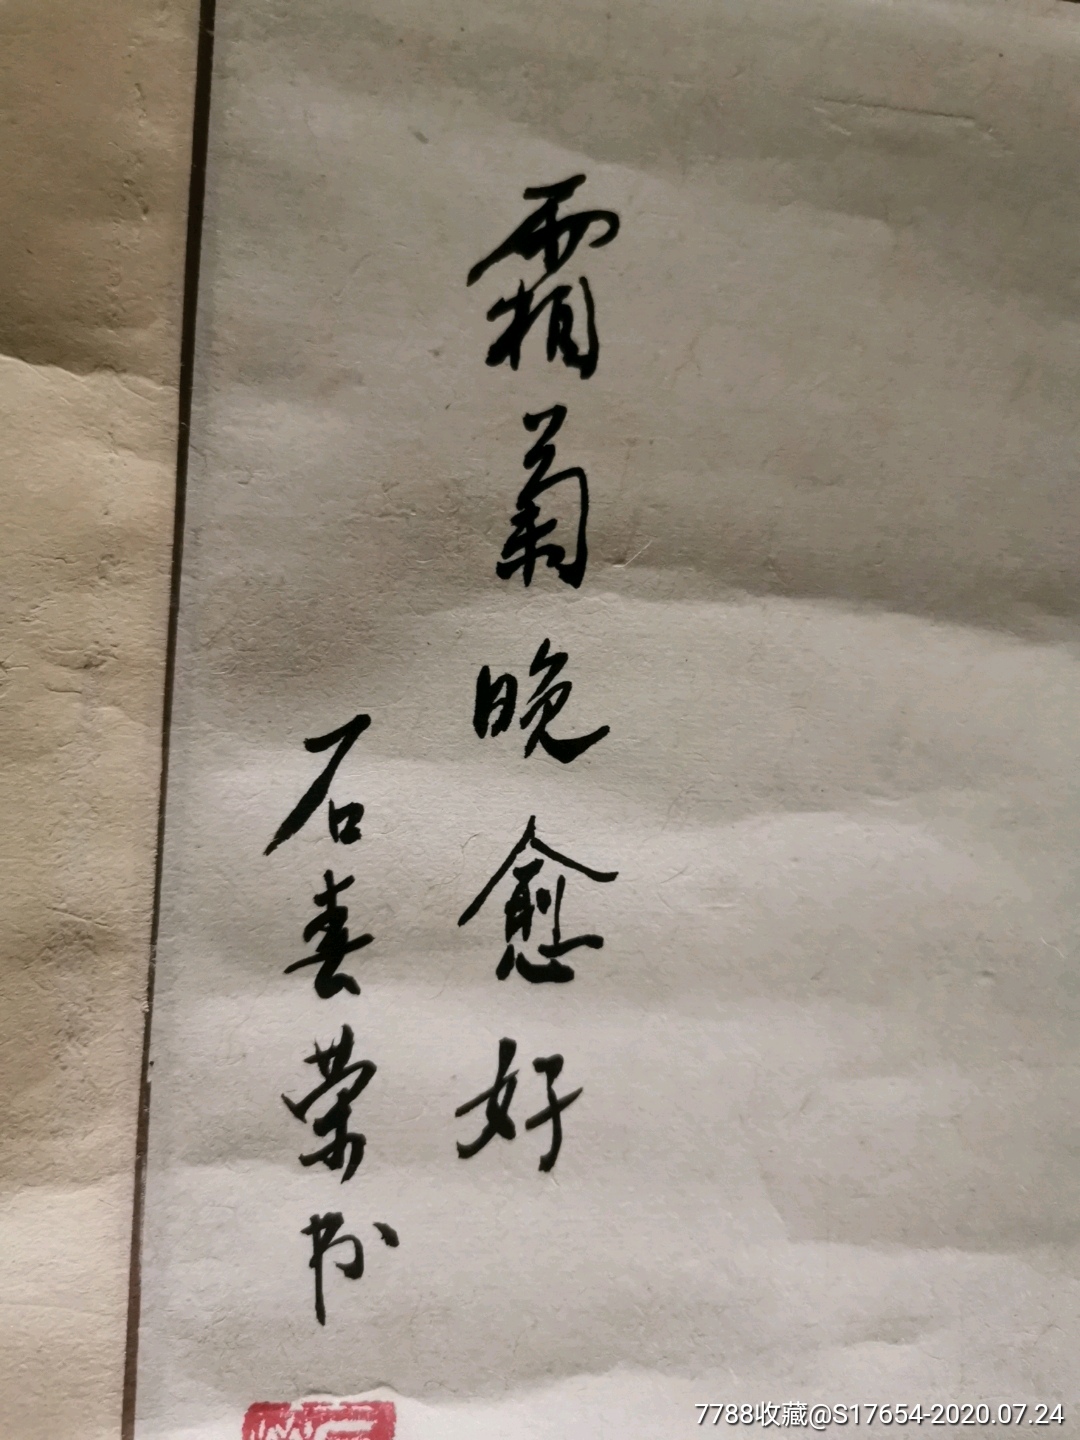 霜菊晚愈好
石喜荣书
7788收藏@S17654-2020.07.24